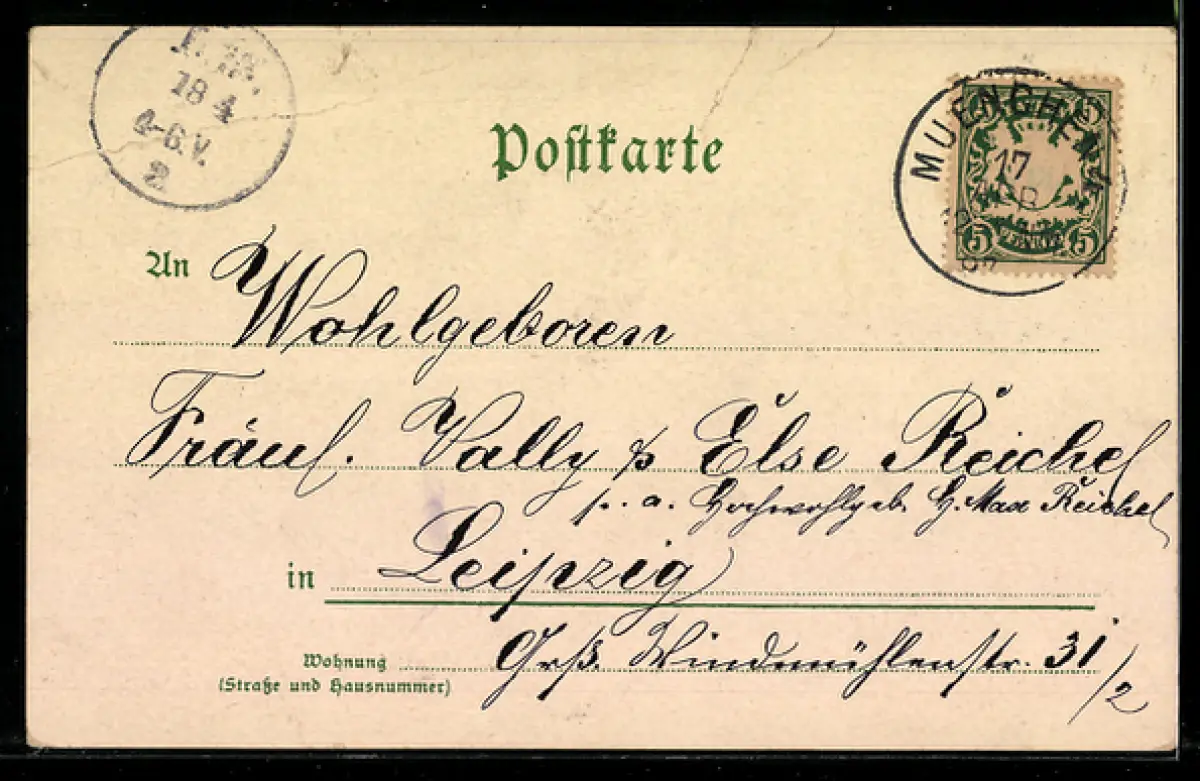 18 4
4-6.V.
2
Postkarte
MUENCHEN
17
APR
5 5
5 PFENNIG 5
An Wohlgeboren
Fräul. Vally & Else Reichel
p. a. Hochwohlgeb. H. Max Reichel
in Leipzig
Wohnung Grß. Windmühlenstr. 31/2
(Straße und Hausnummer)